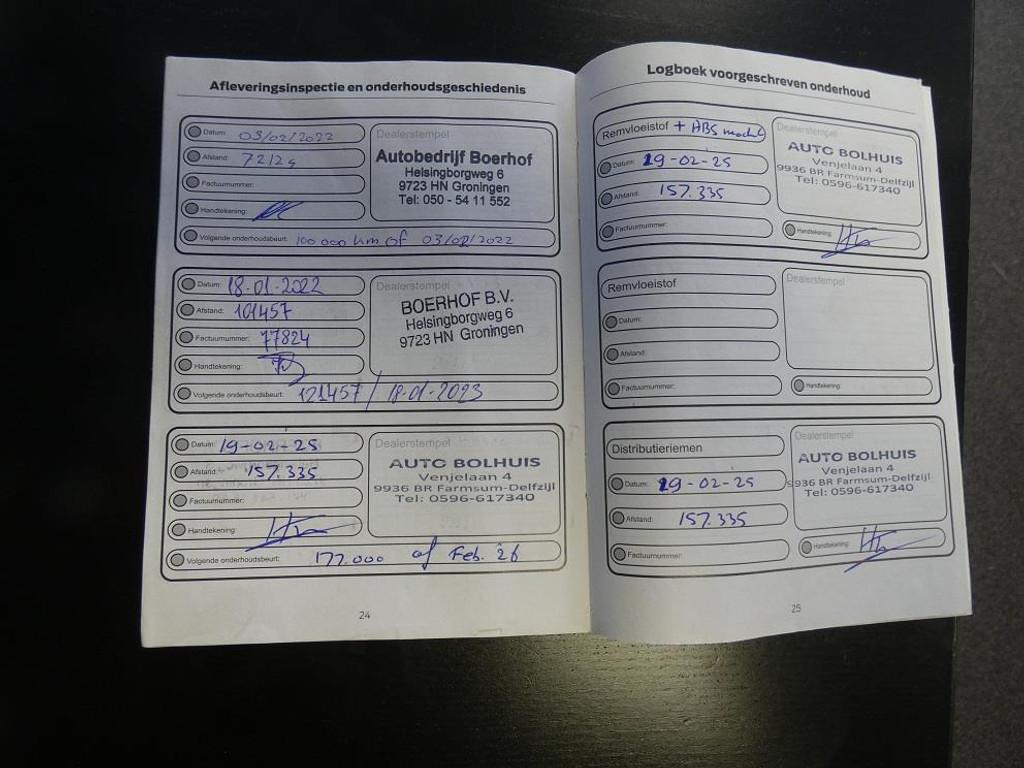 Afleveringsinspectie en onderhoudsgeschiedenis
Datum: 03/02/2022
Afstand: 72124
Factuurnummer:
Handtekening:
Volgende onderhoudsbeurt: 100 000 km of 03/02/2022
Dealerstempel
Autobedrijf Boerhof
Helsingborgweg 6
9723 HN Groningen
Tel: 050 - 54 11 552
Datum: 18-01-2022
Afstand: 101457
Factuurnummer: 77824
Handtekening:
Volgende onderhoudsbeurt: 121457 / 18-01-2023
Dealerstempel
BOERHOF B.V.
Helsingborgweg 6
9723 HN Groningen
Datum: 19-02-25
Afstand: 157.335
Factuurnummer:
Handtekening:
Volgende onderhoudsbeurt: 177.000 of Feb. 26
Dealerstempel
AUTO BOLHUIS
Venjelaan 4
9936 BR Farmsum-Delfzijl
Tel: 0596-617340
24
Logboek voorgeschreven onderhoud
Remvloeistof + ABS
Datum: 19-02-25
Afstand: 157.335
Factuurnummer:
Dealerstempel
AUTO BOLHUIS
Venjelaan 4
9936 BR Farmsum-Delfzijl
Tel: 0596-617340
Handtekening:
Remvloeistof
Datum:
Afstand:
Factuurnummer:
Dealerstempel
Handtekening:
Distributieriemen
Datum: 19-02-25
Afstand: 157.335
Factuurnummer:
Dealerstempel
AUTO BOLHUIS
Venjelaan 4
9936 BR Farmsum-Delfzijl
Tel: 0596-617340
Handtekening:
25